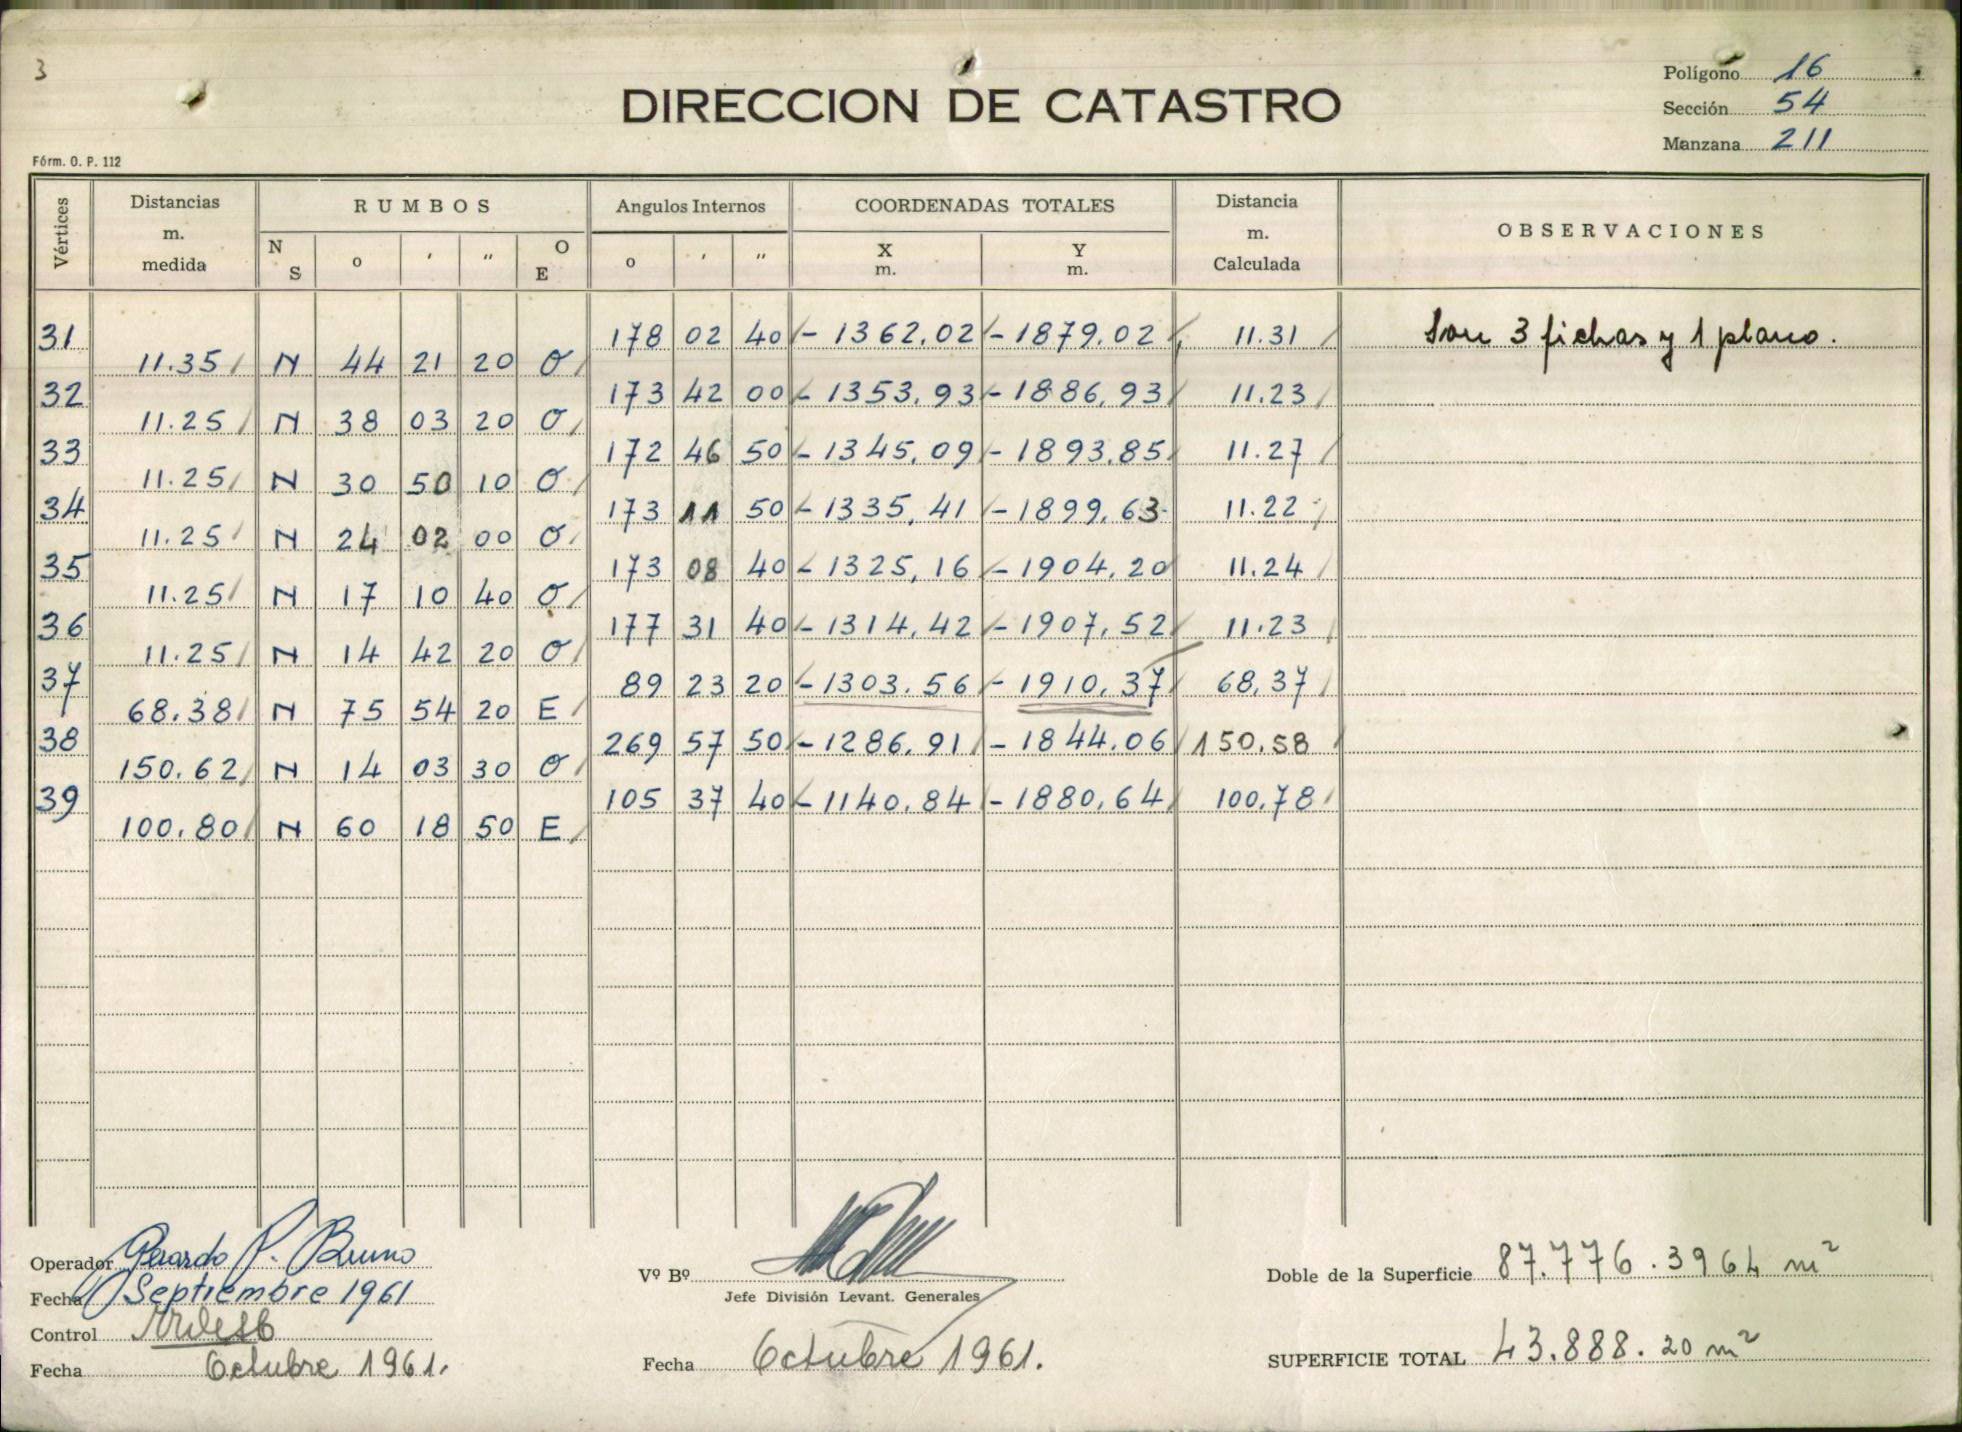 3
DIRECCION DE CATASTRO
Polígono 16
Sección 54
Manzana 211
Fórm. O. P. 112
Vértices
Distancias m. medida
RUMBOS
N S o ′ ″ O E
Angulos Internos
o ′ ″
COORDENADAS TOTALES
X m. Y m.
Distancia m. Calculada
OBSERVACIONES
31 178 02 40 - 1362,02 - 1879,02 11.31 Son 3 fichas y 1 plano.
11.35 N 44 21 20 O
32 173 42 00 - 1353,93 - 1886,93 11.23
11.25 N 38 03 20 O
33 172 46 50 - 1345,09 - 1893,85 11.27
11.25 N 30 50 10 O
34 173 11 50 - 1335,41 - 1899,63 11.22
11.25 N 24 02 00 O
35 173 08 40 - 1325,16 - 1904,20 11.24
11.25 N 17 10 40 O
36 177 31 40 - 1314,42 - 1907,52 11.23
11.25 N 14 42 20 O
37 89 23 20 - 1303.56 - 1910,37 68,37
68.38 N 75 54 20 E
38 269 57 50 - 1286,91 - 1844.06 150,58
150.62 N 14 03 30 O
39 105 37 40 - 1140,84 - 1880,64 100,78
100.80 N 60 18 50 E
Operador Gerardo P. Bruno
Fecha Septiembre 1961
Control
Fecha Octubre 1961.
Vº Bº
Jefe División Levant. Generales
Fecha Octubre 1961.
Doble de la Superficie 87.776.3964 m²
SUPERFICIE TOTAL 43.888.20 m²